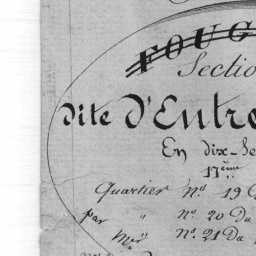 FOUG
Sectio
dite D'Entre
En dix-Se
17ème
Quartier Nd 19 D
par " no. 20 Du
Mrs no. 21 Du